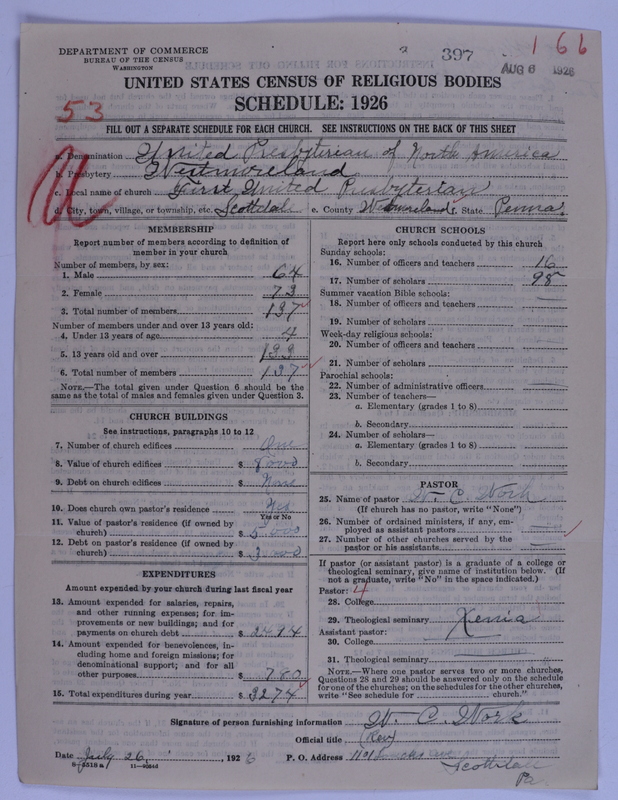 DEPARTMENT OF COMMERCE
BUREAU OF THE CENSUS
WASHINGTON
397
166
AUG 6 1926
UNITED STATES CENSUS OF RELIGIOUS BODIES
SCHEDULE: 1926
53
FILL OUT A SEPARATE SCHEDULE FOR EACH CHURCH. SEE INSTRUCTIONS ON THE BACK OF THIS SHEET
a. Denomination United Presbyterian of North America
b. Presbytery Westmoreland
c. Local name of church First United Presbyterian
d. City, town, village, or township, etc. Scottdale e. County Westmoreland f. State Penna.
a
MEMBERSHIP
Report number of members according to definition of
member in your church
Number of members, by sex:
1. Male 64
2. Female 73
3. Total number of members 137
Number of members under and over 13 years old:
4. Under 13 years of age 4
5. 13 years old and over 133
6. Total number of members 137
NOTE.—The total given under Question 6 should be the
same as the total of males and females given under Question 3.
CHURCH BUILDINGS
See instructions, paragraphs 10 to 12
7. Number of church edifices One
8. Value of church edifices $ 8000
9. Debt on church edifices $ None
10. Does church own pastor's residence Yes
Yes or No
11. Value of pastor's residence (if owned by
church) $ 5000
12. Debt on pastor's residence (if owned by
church) $ 3000
EXPENDITURES
Amount expended by your church during last fiscal year
13. Amount expended for salaries, repairs,
and other running expenses; for im-
provements or new buildings; and for
payments on church debt $ 2494
14. Amount expended for benevolences, in-
cluding home and foreign missions; for
denominational support; and for all
other purposes $ 780
15. Total expenditures during year $ 3274
CHURCH SCHOOLS
Report here only schools conducted by this church
Sunday schools:
16. Number of officers and teachers 16
17. Number of scholars 98
Summer vacation Bible schools:
18. Number of officers and teachers
19. Number of scholars
Week-day religious schools:
20. Number of officers and teachers
21. Number of scholars
Parochial schools:
22. Number of administrative officers
23. Number of teachers—
a. Elementary (grades 1 to 8)
b. Secondary
24. Number of scholars—
a. Elementary (grades 1 to 8)
b. Secondary
PASTOR
25. Name of pastor W. C. Work
(If church has no pastor, write "None")
26. Number of ordained ministers, if any, em-
ployed as assistant pastors
27. Number of other churches served by the
pastor or his assistants
If pastor (or assistant pastor) is a graduate of a college or
theological seminary, give name of institution below. (If
not a graduate, write "No" in the space indicated.)
Pastor: 4
28. College
29. Theological seminary Xenia
Assistant pastor:
30. College
31. Theological seminary
NOTE.—Where one pastor serves two or more churches,
Questions 28 and 29 should be answered only on the schedule
for one of the churches; on the schedules for the other churches,
write "See schedule for church."
Signature of person furnishing information W. C. Work
Official title (Rev)
Date July 26, 1926 P. O. Address
Scottdale
Pa